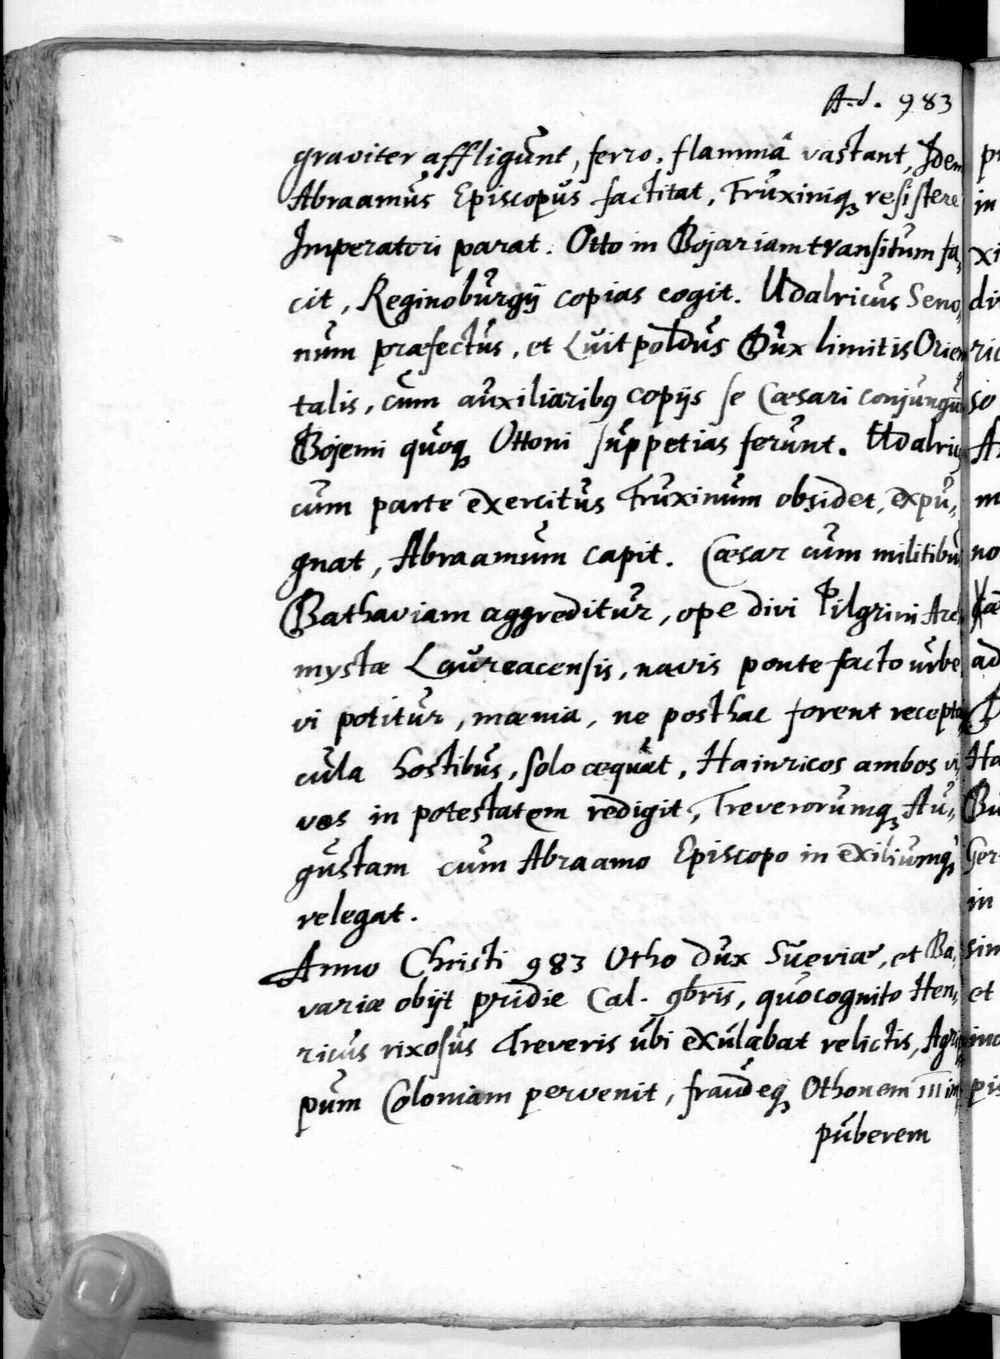 A.d. 983
graviter affligunt, ferro, flammâ vastant, Idem
Abraamus Episcopus factitat, Fruxiniq̨ resistere
Imperatori parat. Otto in Bojariam transitum fa,
cit, Reginoburgij copias cogit. Udalricus Seno,
num præfectus, et Luitpoldus Dux limitis Orien
talis, cum auxiliarib9 copijs se Cæsari conjungũ
Bojemi quoq̨ Ottoni suppetias ferunt. Udalric9
cum parte exercitus Fruxinum obsidet, expu,,
gnat, Abraamum capit. Cæsar cum militibu
Bathaviam aggreditur, ope divi Pilgrini Are,
mystæ Laureacensis, navis ponte facto urbe
vi potitur, mœnia, ne posthac forent recepta
cula hostibus, solo æquat, Hainricos ambos vi,
vos in potestatem redigit, Treverorumq̨ Au,,
gustam cum Abraamo Episcopo in exiliumq̨
relegat.
Anno Christi 983 Otho Dux Sueviæ, et Ba,
variæ obijt pridie Cal. 9bris, quo cognito Hen,
ricus rixosus Treveris ubi exulabat relictis, Agrip
pum Coloniam pervenit, fraudeq̨ Othonem III im
puberem